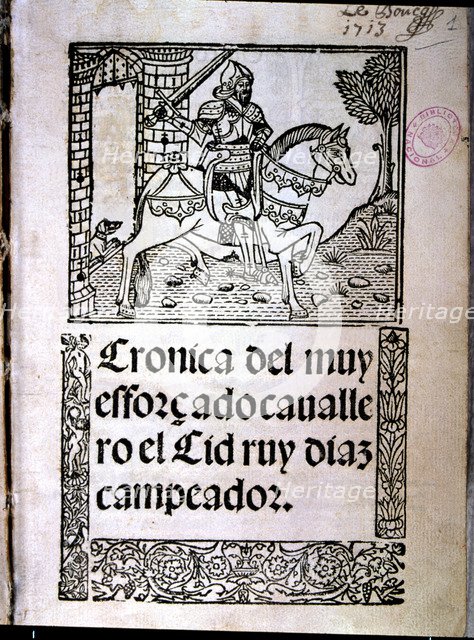 Le Boucq
1713
1
BIBLIOTECA NACIONAL
Cronica del muy
efforçado caualle
ro el Cid ruy diaz
campeador.
Heritage
Heritage
Heritage
Heritage